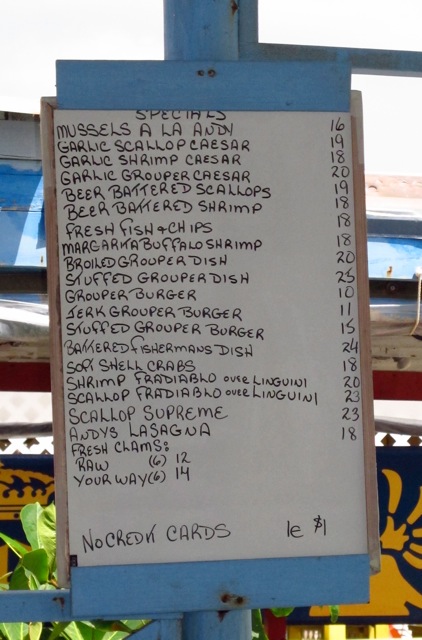 SPECIALS
MUSSELS A LA ANDY 16
GARLIC SCALLOP CAESAR 19
GARLIC SHRIMP CAESAR 18
GARLIC GROUPER CAESAR 20
BEER BATTERED SCALLOPS 19
BEER BATTERED SHRIMP 18
FRESH FISH & CHIPS 18
MARGARITA BUFFALO SHRIMP 18
BROILED GROUPER DISH 20
STUFFED GROUPER DISH 25
GROUPER BURGER 10
JERK GROUPER BURGER 11
STUFFED GROUPER BURGER 15
BATTERED FISHERMANS DISH 24
SOFT SHELL CRABS 18
SHRIMP FRADIABLO OVER LINGUINI 20
SCALLOP FRADIABLO OVER LINGUINI 23
SCALLOP SUPREME 23
ANDYS LASAGNA 18
FRESH CLAMS:
RAW (6) 12
YOUR WAY (6) 14
NO CREDIT CARDS 1e $1